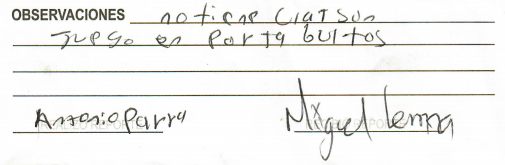 OBSERVACIONES no tiene Clatson
Juego en Parta bultos
Antonio Parra
Miguel lerma